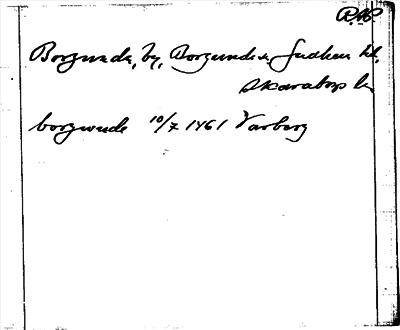 RAP
Borgunda, by, Borgunda sn Gudhem hd,
Skaraborgs län
borgwnde 10/7 1461 Varberg